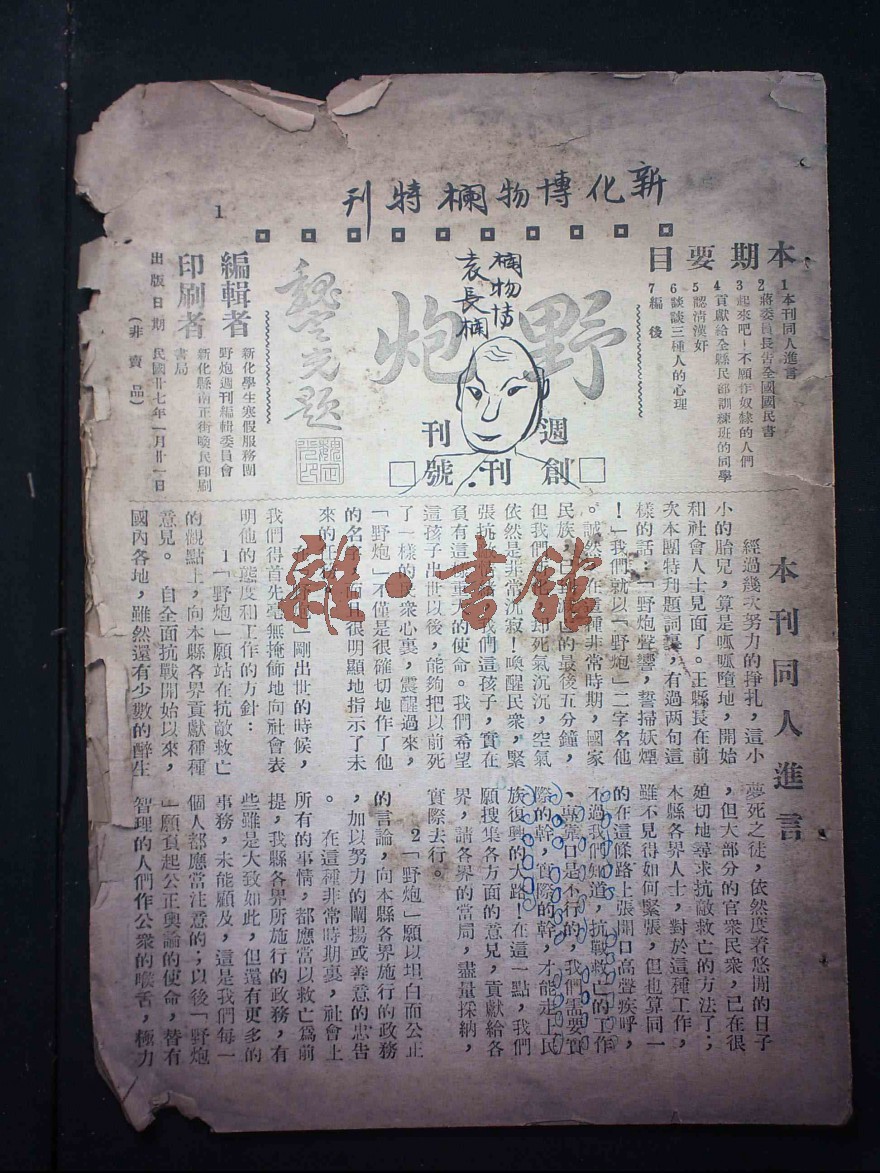 新化博物欄特刊
本期要目
1 本刊同人進言
2 蔣委員長告全國國民書
3 起來吧!不願作奴隸的人們
4 貢獻給全縣民部訓練班的同學
5 認清漢奸
6 談談三種人的心理
7 編後
野炮
週刊
創刊號
欄物博
袁長楠
題
編輯者
新化學生寒假服務團
野炮週刊編輯委員會
印刷者
新化縣南正街喚民印刷
書局
出版日期 民國廿七年一月廿一日
(非賣品)
1
本刊同人進言
經過幾次努力的掙扎,這小
小的胎兒,算是呱呱墮地,開始
和社會人士見面了。王縣長在前
次本團特刋題詞裏,有過两句這
樣的話:「野炮聲響,誓掃妖煙
!」我們就以「野炮」二字名他
。誠然,在這種非常時期,國家
民族,已到 的最後五分鐘,
但我們 却死氣沉沉,空氣
依然是非常沉寂!喚醒民衆,緊
張抗 我們這孩子,實在
負有這 重大的使命。我們希望
這孩子出世以後,能夠把以前死
了一樣的民衆心裏,震醒過來,
「野炮」不僅是很確切地作了他
的名字,而且很明顯地指示了未
來的
剛出世的時候,
我們得首先毫無掩飾地向社會表
明他的態度和工作的方針:
1「野炮」願站在抗敵救亡
的觀點上,向本縣各界貢獻種種
意見。 自全面抗戰開始以來,
國內各地,雖然還有少數的醉生
夢死之徒,依然度着悠閒的日子
,但大部分的官衆民衆,已在很
廹切地尋求抗敵救亡的方法了;
本縣各界人士,對於這種工作,
雖不見得如何緊張,但也算同一
的在這條路上張開口高聲疾呼,
不過我們知道,抗戰救亡的工作
、專靠口是不行的,我們需要實
際的幹,實際的幹,才能走上民
族復興的大路!在這一點,我們
願搜集各方面的意見,貢獻給各
界,請各界的當局,盡量採納,
實際去行。
2「野炮」願以坦白面公正
的言論,向本縣各界施行的政務
,加以努力的闡揚或善意的忠告
。 在這種非常時期裏,社會上
所有的事情,都應當以救亡爲前
提,我縣各界所施行的政務,有
些雖是大致如此,但還有更多的
事務,未能顧及,這是我們每一
個人都應當注意的;以後「野炮
」願負起公正輿論的使命,替有
智理的人們作公衆的喉舌,極力
雜·書館